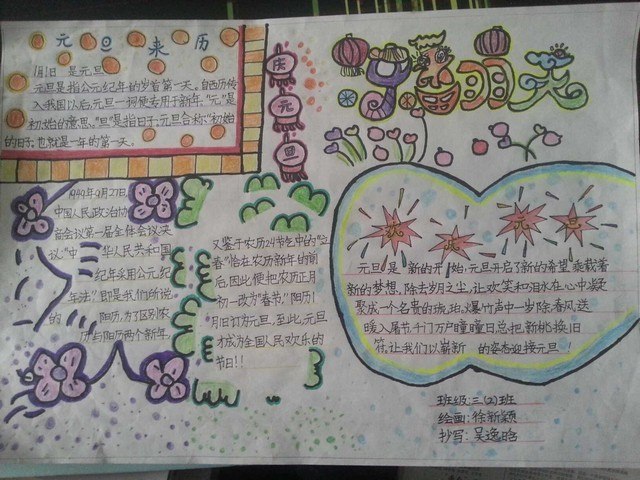 元旦来历
1月1日 是元旦
元旦是指公元纪年的岁首第一天。自西历传
入我国以后,元旦一词便专用于新年。"元"是
初始的意思,"旦"是指日子;元旦合称"初始
的日子;也就是一年的第一天。
庆
元
旦
1949年9月27日,
中国人民政治协
商会议第一届全体会议决
议:"中华人民共和国
纪年采用公元纪
年法"。即是我们所说
的阳历,为了区别农
历与阳历两个新年,
又鉴于农历24节乞中的"立
春"恰在农历新年的前
后,因此便把农历正月
初一改为"春节",阳历1
月1日订为元旦,至此,元旦
才成为全国人民欢乐的
节日!!
元旦
元旦是新的开始,元旦开启了新的希望,乘载着
新的梦想,除去岁月之尘,让欢笑和泪水在心中凝
聚成一个名贵的琥珀,爆竹声中一岁除,春风送
暖入屠苏,千门万户曈曈日,总把新桃换旧
符,让我们以崭新的姿态迎接元旦!
班级:三(2)班
绘画:徐新颖
抄写:吴逸晗